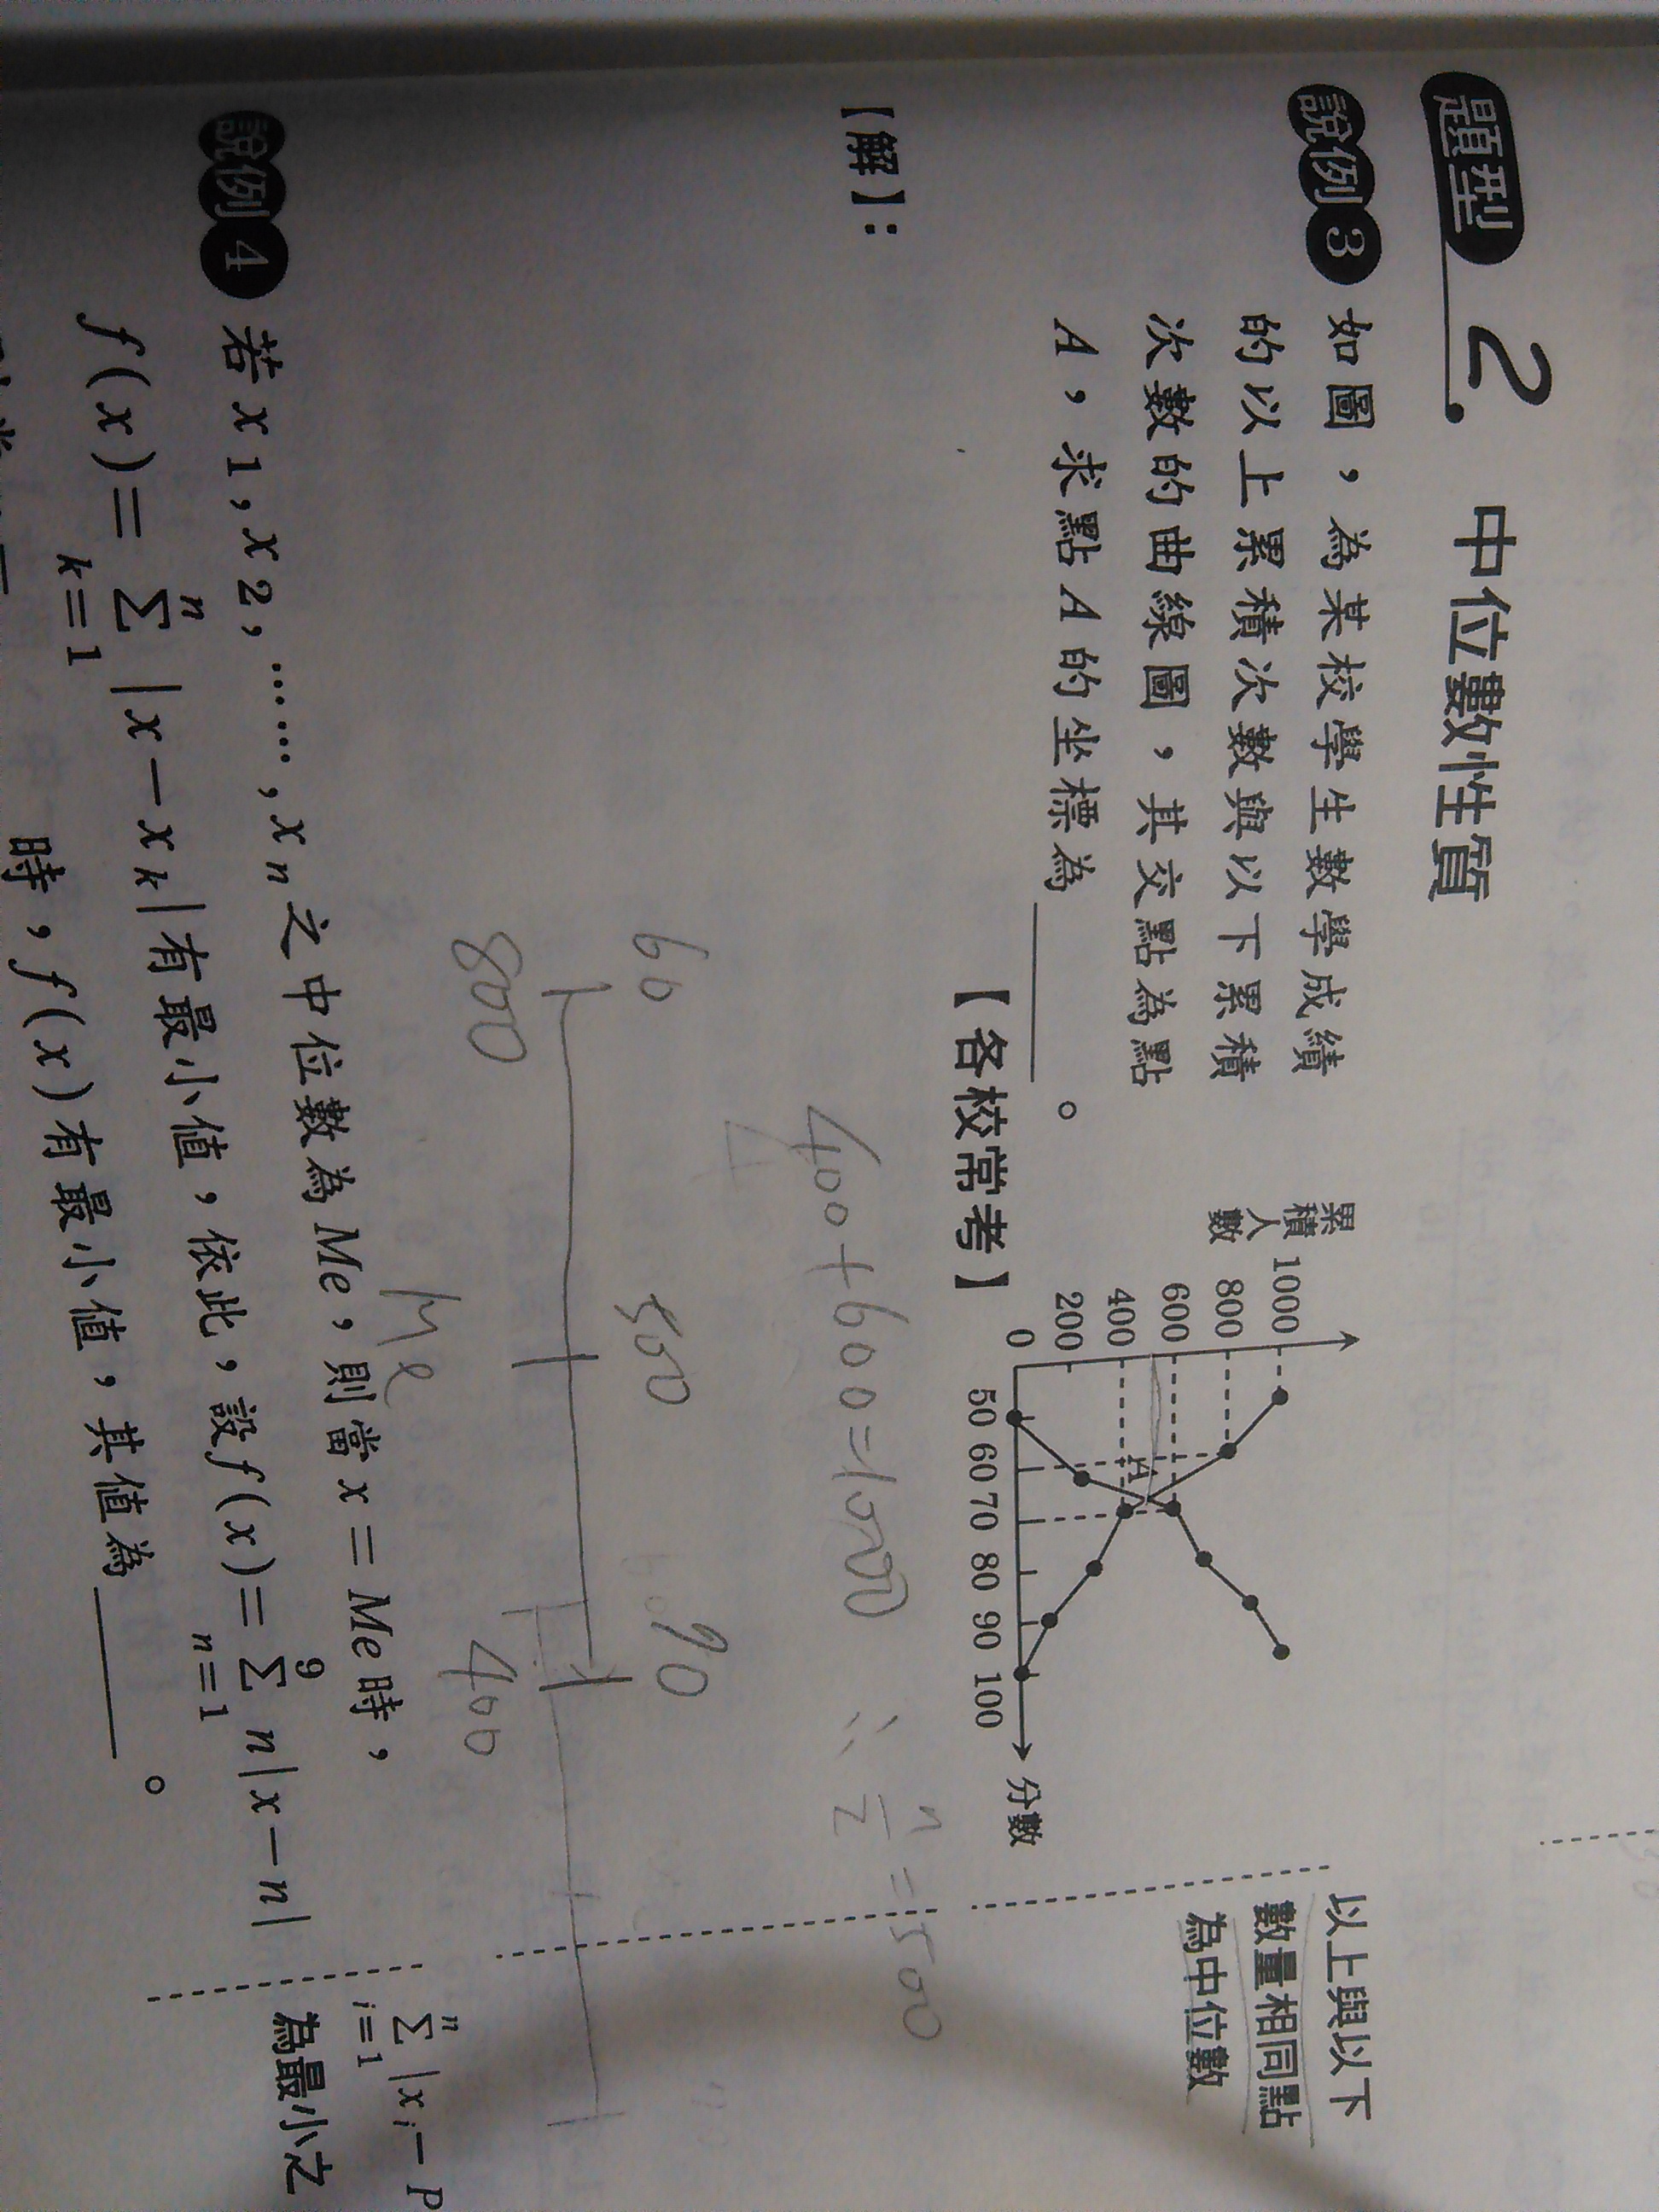 題型 2. 中位數性質
說例 3 如圖，為某校學生數學成績
的以上累積次數與以下累積
次數的曲線圖，其交點為點
A，求點A的坐標為______。
【各校常考】
累積人數
1000
800
600
400
200
0
50 60 70 80 90 100
分數
A
以上與以下
數量相同點
為中位數
【解】：
400+600=1000 ∴ n/2 = 500
60 500 70
800 Me 400
說例 4 若x1,x2,……,xn之中位數為Me，則當x=Me時，
f(x)=∑(k=1→n)|x−xk|有最小值，依此，設f(x)=∑(n=1→9)n|x−n|
時，f(x)有最小值，其值為______。
∑(i=1→n)|xi−P
為最小之